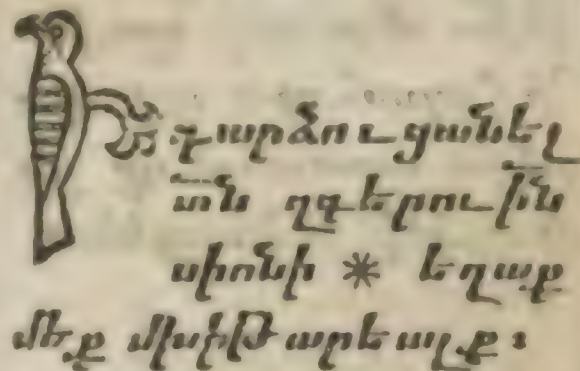 Ի դարձուցանել
տ̅ն̅ զգերութ̅ի̅ն̅
սիոնի * եղաք
մեք մխիթարեալք։